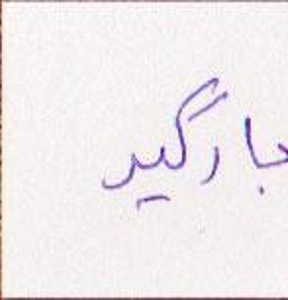 جارگیر